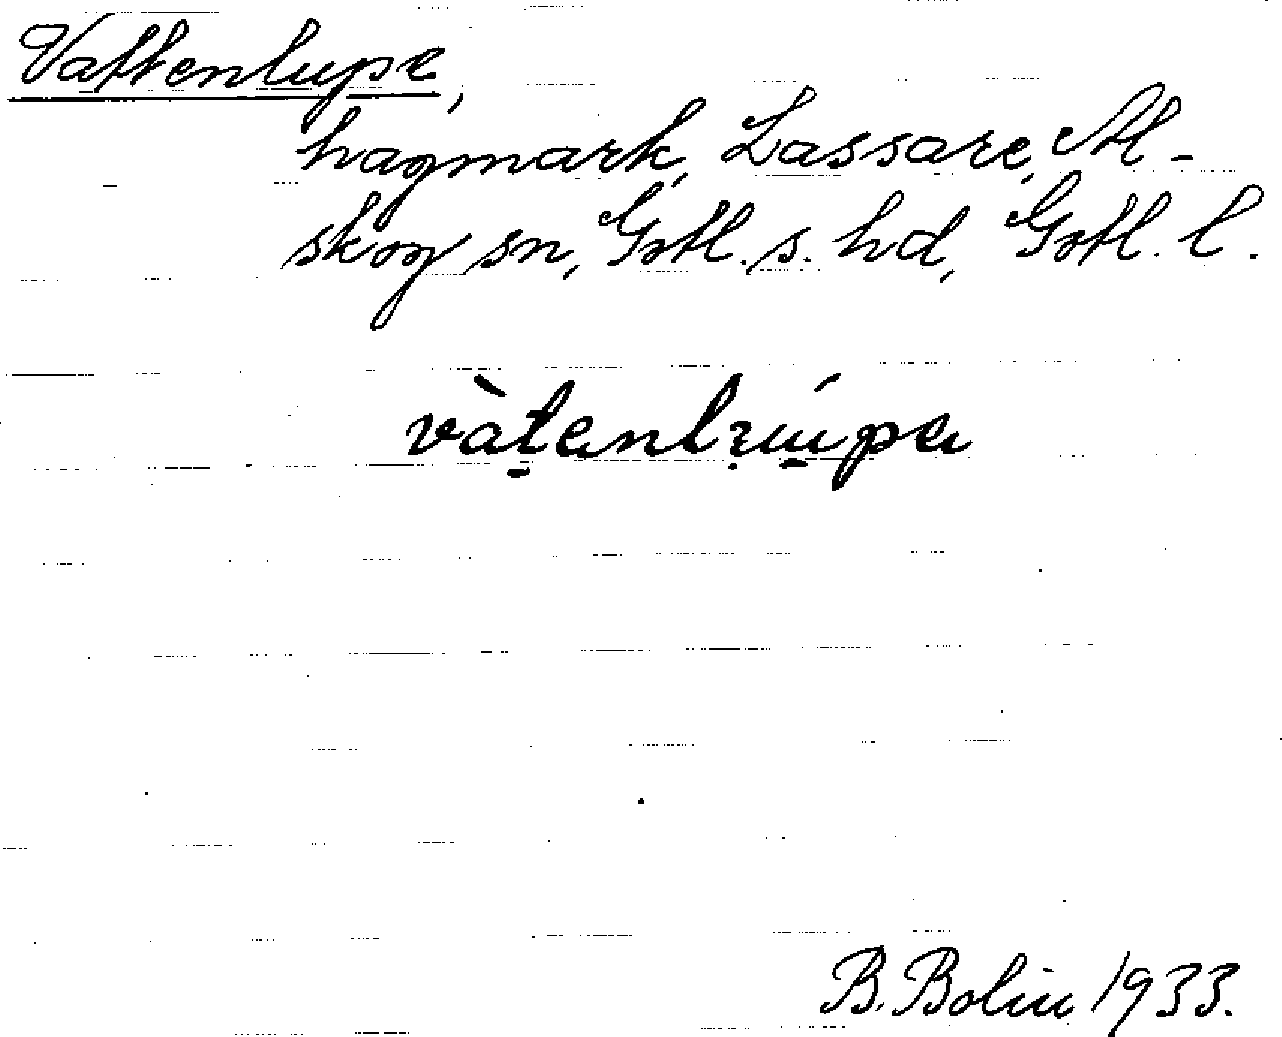 Vattenlupe,
hagmark, Lassare, Al-
skog sn, Gotl. s. hd, Gotl. l.
B. Bolin 1933.